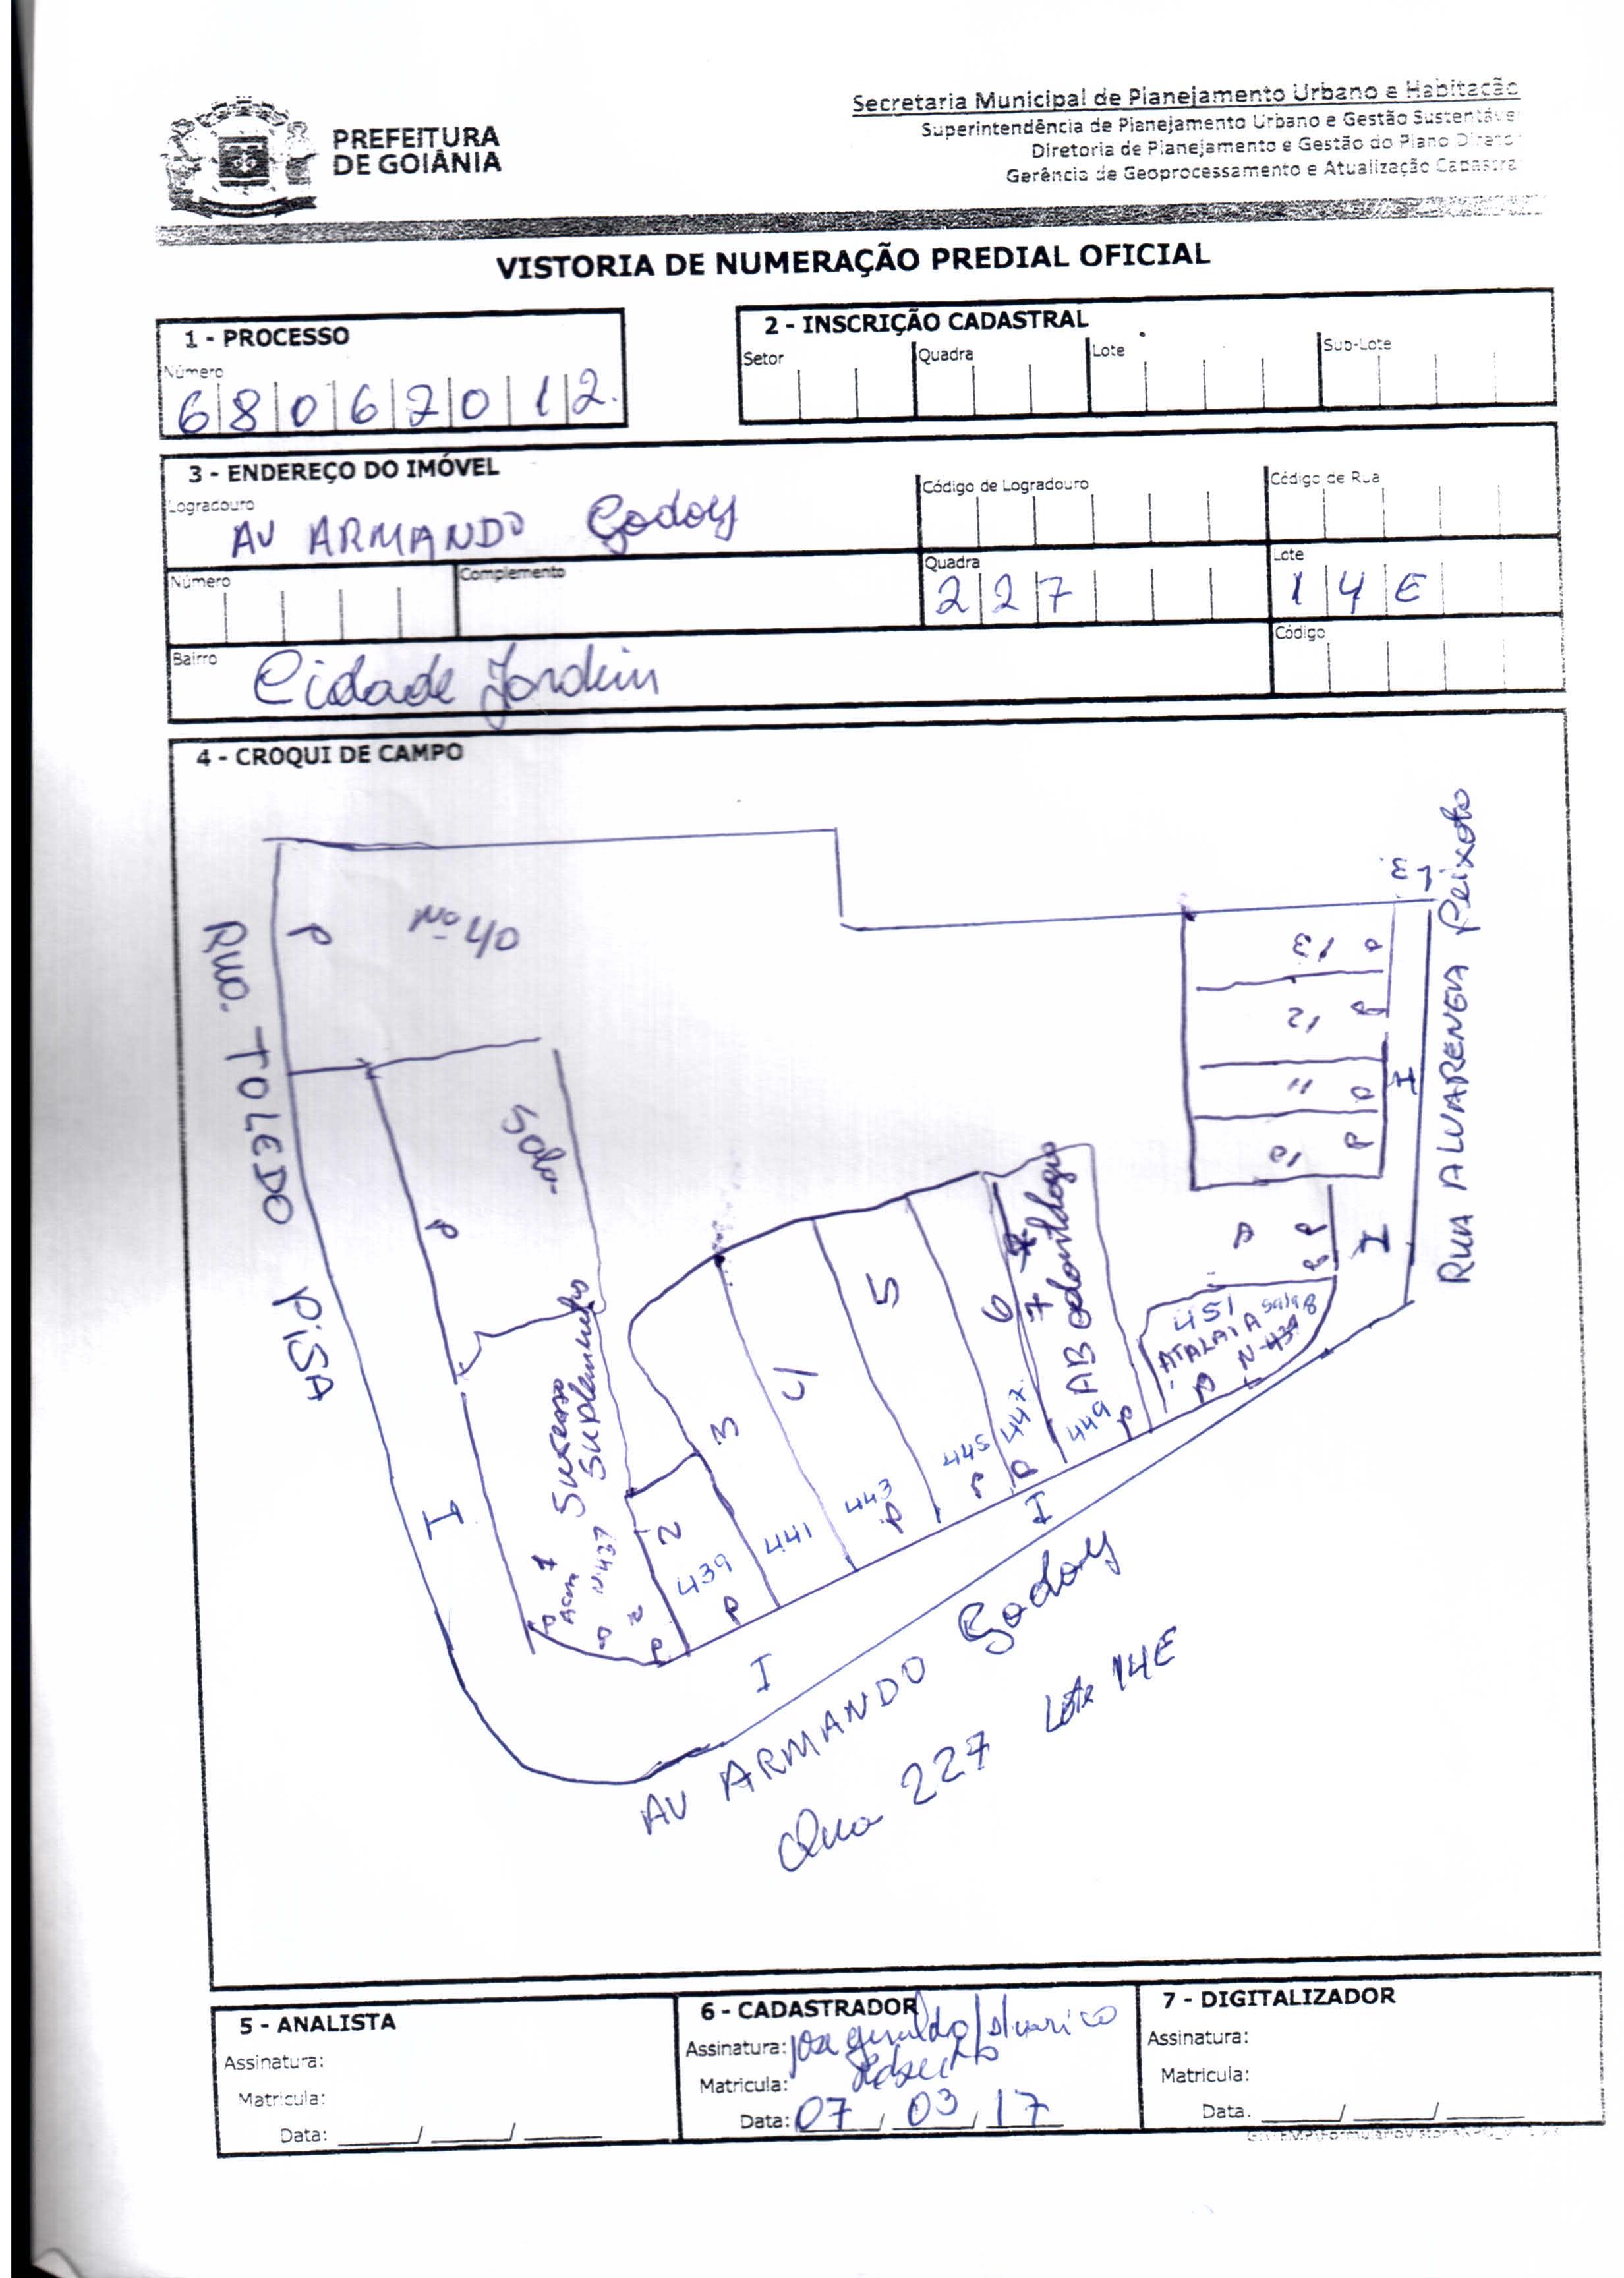 PREFEITURA
DE GOIÂNIA
Secretaria Municipal de Planejamento Urbano e Habitação
Superintendência de Planejamento Urbano e Gestão Sustentável
Diretoria de Planejamento e Gestão do Plano Diretor
Gerência de Geoprocessamento e Atualização Cadastral
VISTORIA DE NUMERAÇÃO PREDIAL OFICIAL
1 - PROCESSO
Número
68062012
2 - INSCRIÇÃO CADASTRAL
Setor Quadra Lote Sub-Lote
3 - ENDEREÇO DO IMÓVEL
Logradouro
AV ARMANDO Godoy
Código de Logradouro
Código de Rua
Número
Complemento
Quadra
227
Lote
14E
Bairro
Cidade Jardim
Código
4 - CROQUI DE CAMPO
Rua TOLEDO PISA
P
Nº 40
L3
RUA ALVARENGA Peixoto
13 P
12 P
11 P
10 P
I
P
P
P
I
Sala
P
I
Sucesso
Suplementos
1
N 437
P
2
439
P
3
441
4
443
P
5
445
P
6
447
P
7
AB odontologia
449
P
451
ATALAIA Sala 8
N-439
P
I
I
AV ARMANDO Godoy
Qua 227 Lote 14E
5 - ANALISTA
Assinatura:
Matricula:
Data: ___/___/___
6 - CADASTRADOR
Assinatura: José Geraldo/
Matricula:
Data: 07/03/17
7 - DIGITALIZADOR
Assinatura:
Matricula:
Data. ___/___/___